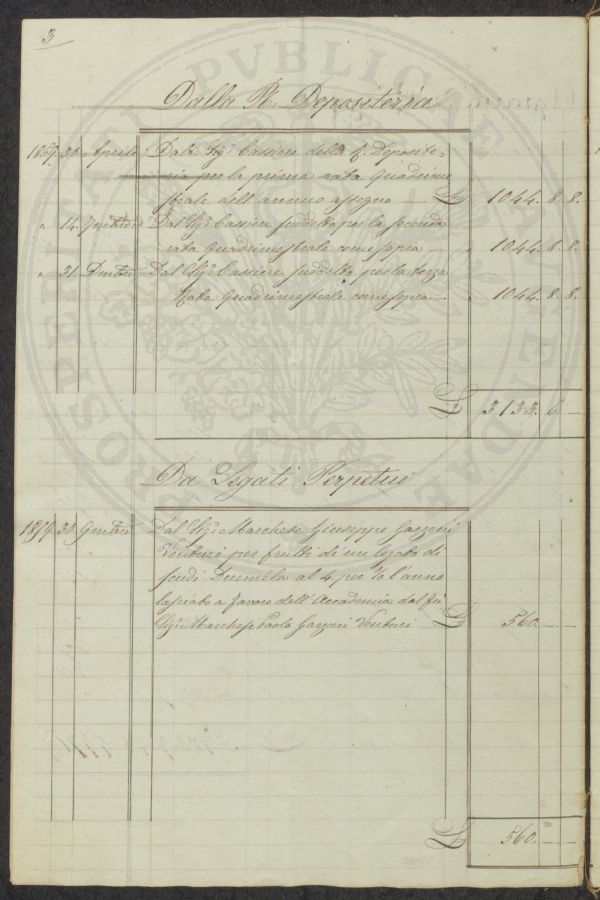 3
Dalla R. Depositeria
1859. 30 Aprile Dal Sig.r Cassiere della R. Deposite=
ria per la prima rata quadrime
strale dell'annuo assegno — £ 1044. 8. 8.
" 14. Dal Sig.r Cassiere suddetto per la seconda
rata quadrimestrale come sopra — " 1044. 8. 8.
" 31. Dal Sig.r Cassiere suddetto per la terza
Rata quadrimestrale come sopra — " 1044. 8. 8.
£ 3133. 6. —
Da Legati Perpetui
1859. 30. Dal Sig.r Marchese Giuseppe Garzoni
Venturi per frutti di un legato di
scudi Duemila al 4 per % l'anno
lasciato a favore dell'Accademia dal fu
Sig.r Marchese Paolo Garzoni Venturi £ 560. — —
£ 560. — —
PUBLICAE
PROSPERITATI